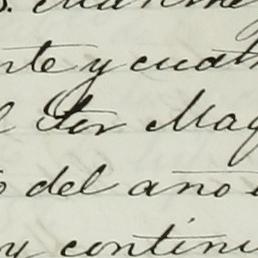 nte y cuatr
l Sor Mag
o del año
y continu